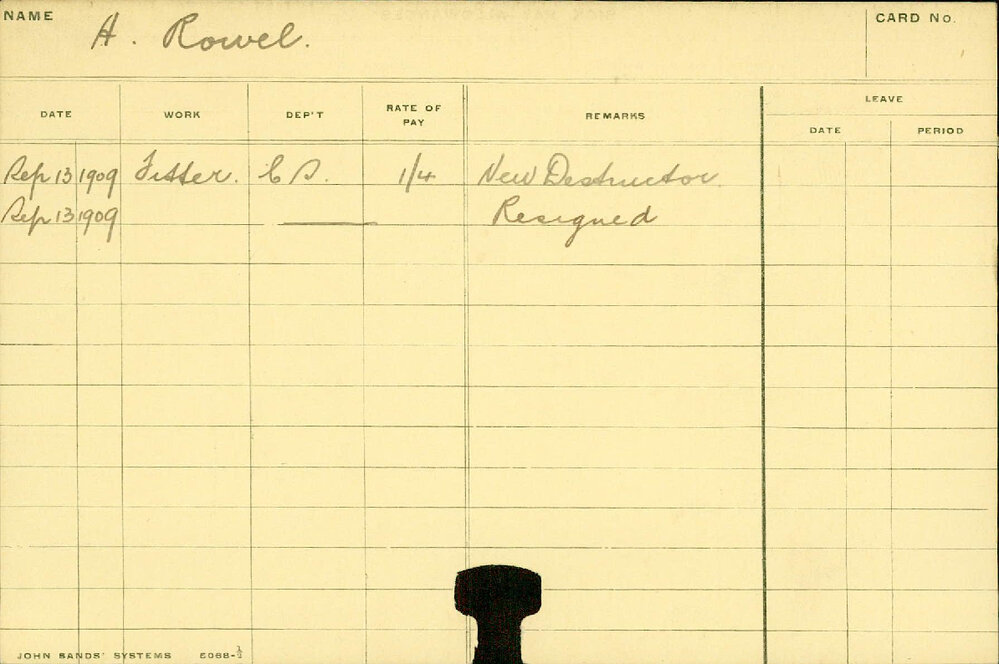 NAME A. Rowel. CARD No.
LEAVE
DATE WORK DEP'T RATE OF PAY REMARKS DATE PERIOD
Sep 13 1909 Fitter. C S. 1/4 New Destructor.
Sep 13 1909 Resigned
JOHN SANDS' SYSTEMS